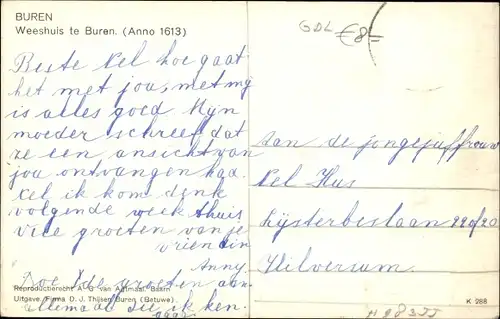 BUREN
Weeshuis te Buren. (Anno 1613)
GDL €8-
Beste Nel hoe gaat
het met jou, met mij
is alles goed Mijn
moeder schreef dat
ze een ansicht van
jou ontvangen had.
Nel ik kom denk
volgende week thuis
vele groeten van je
vriendin
Anny.
Doe de groeten aan
allemaal die ik ken.
Reproductierecht A. G. van Agtmaal Baarn
Uitgave Firma D. J. Thijsen Buren (Betuwe).
Aan de jongejuffrouw
Nel Hus
Lijsterbeslaan 22 of 20
Hilversum.
K 288